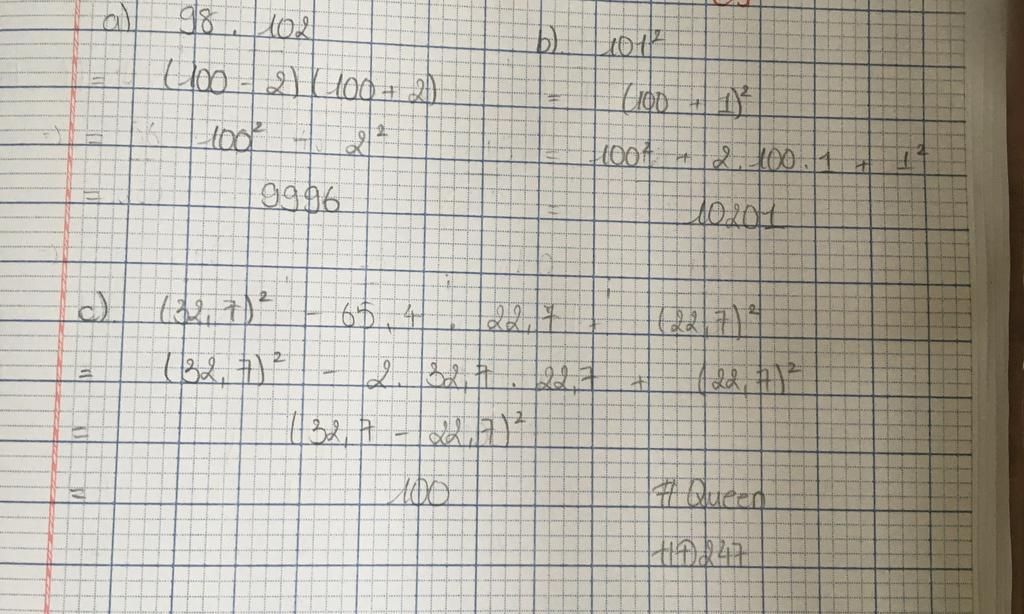 a) 98 . 102
= (100 - 2)(100 + 2)
= 100² - 2²
= 9996
b) 101²
= (100 + 1)²
= 100² + 2.100.1 + 1²
= 10201
c) (32,7)² - 65,4 . 22,7 + (22,7)²
= (32,7)² - 2. 32,7 . 22,7 + (22,7)²
= (32,7 - 22,7)²
= 100
# Queen